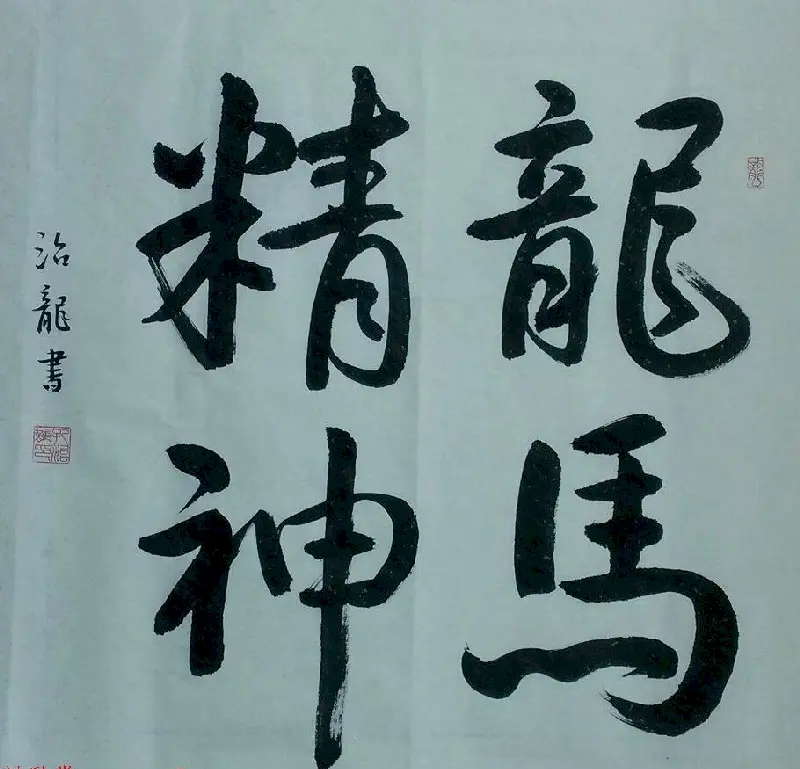 龍馬
精神
治龍書